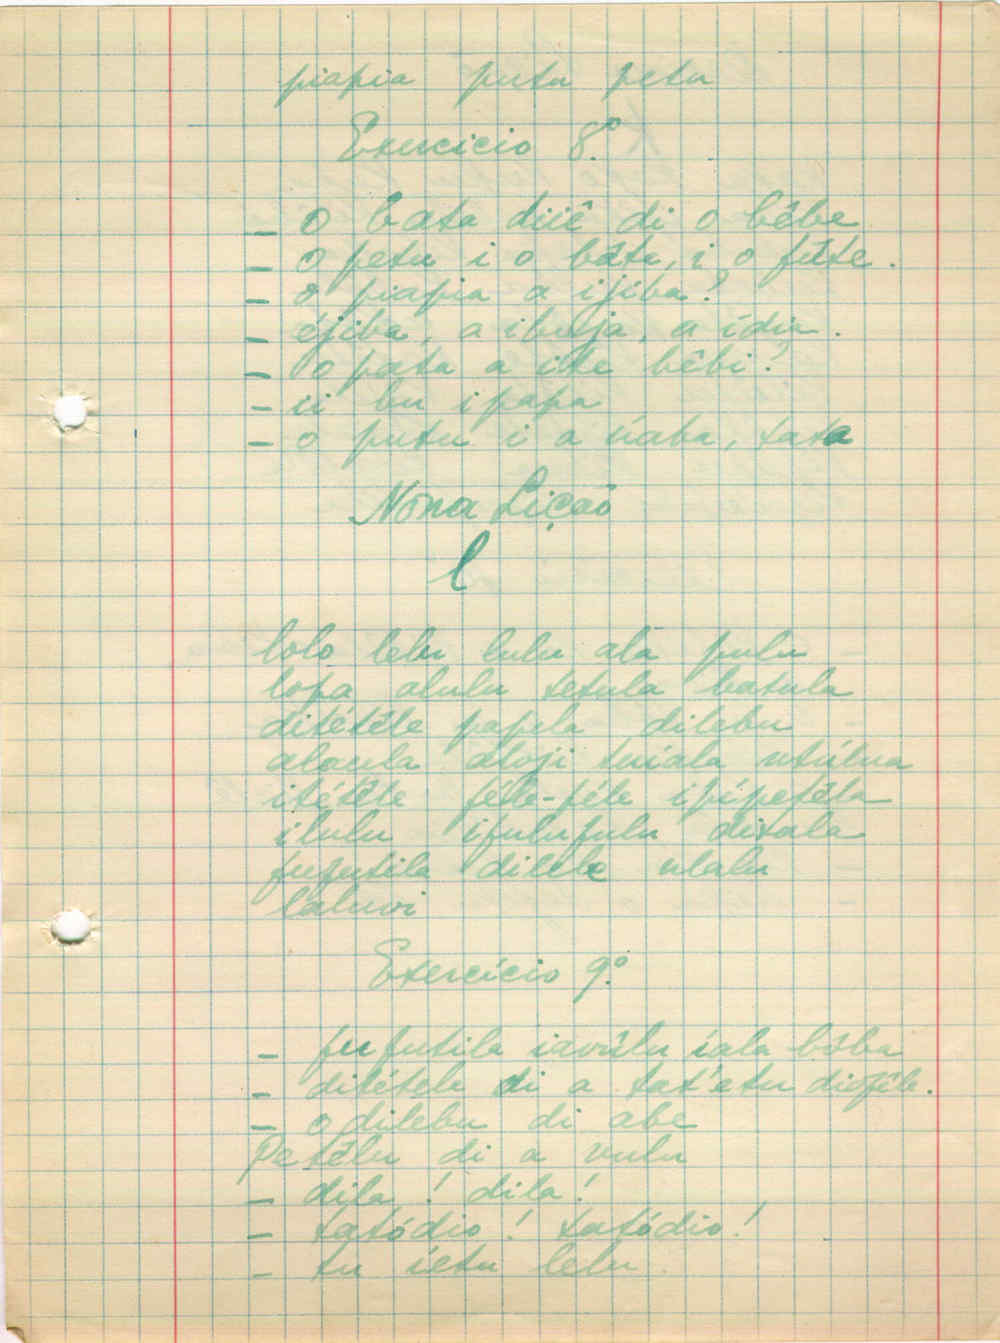 piapia putu petu
Exercício 8º.
- o bata diiê di o bêbe
- o petu i o bâta, i o fúte.
- o piapia a ijíba?
- éjiba, a ibuja, a ídia.
- o pata a ite bêbi?
- ii bu ipapa
- o putu i a úaba, tata
Nona Lição
l
lolo lelu lulu alá pulu
lopa alulu tetula batula
ditétêle papela dilebu
aloji tuiala
itétêle féle-féle ipípetêla
ilulu ifulufulu ditala
fufutila dilele ulalu
laluvi
Exercício 9º.
- fufutila iavúlu íala bôba
- ditétele di a tat'etu
- o dilebu di abe
Petêlu di a vulu
- díla! díla!
- tatódio! tatódio!
- tu íetu lelu